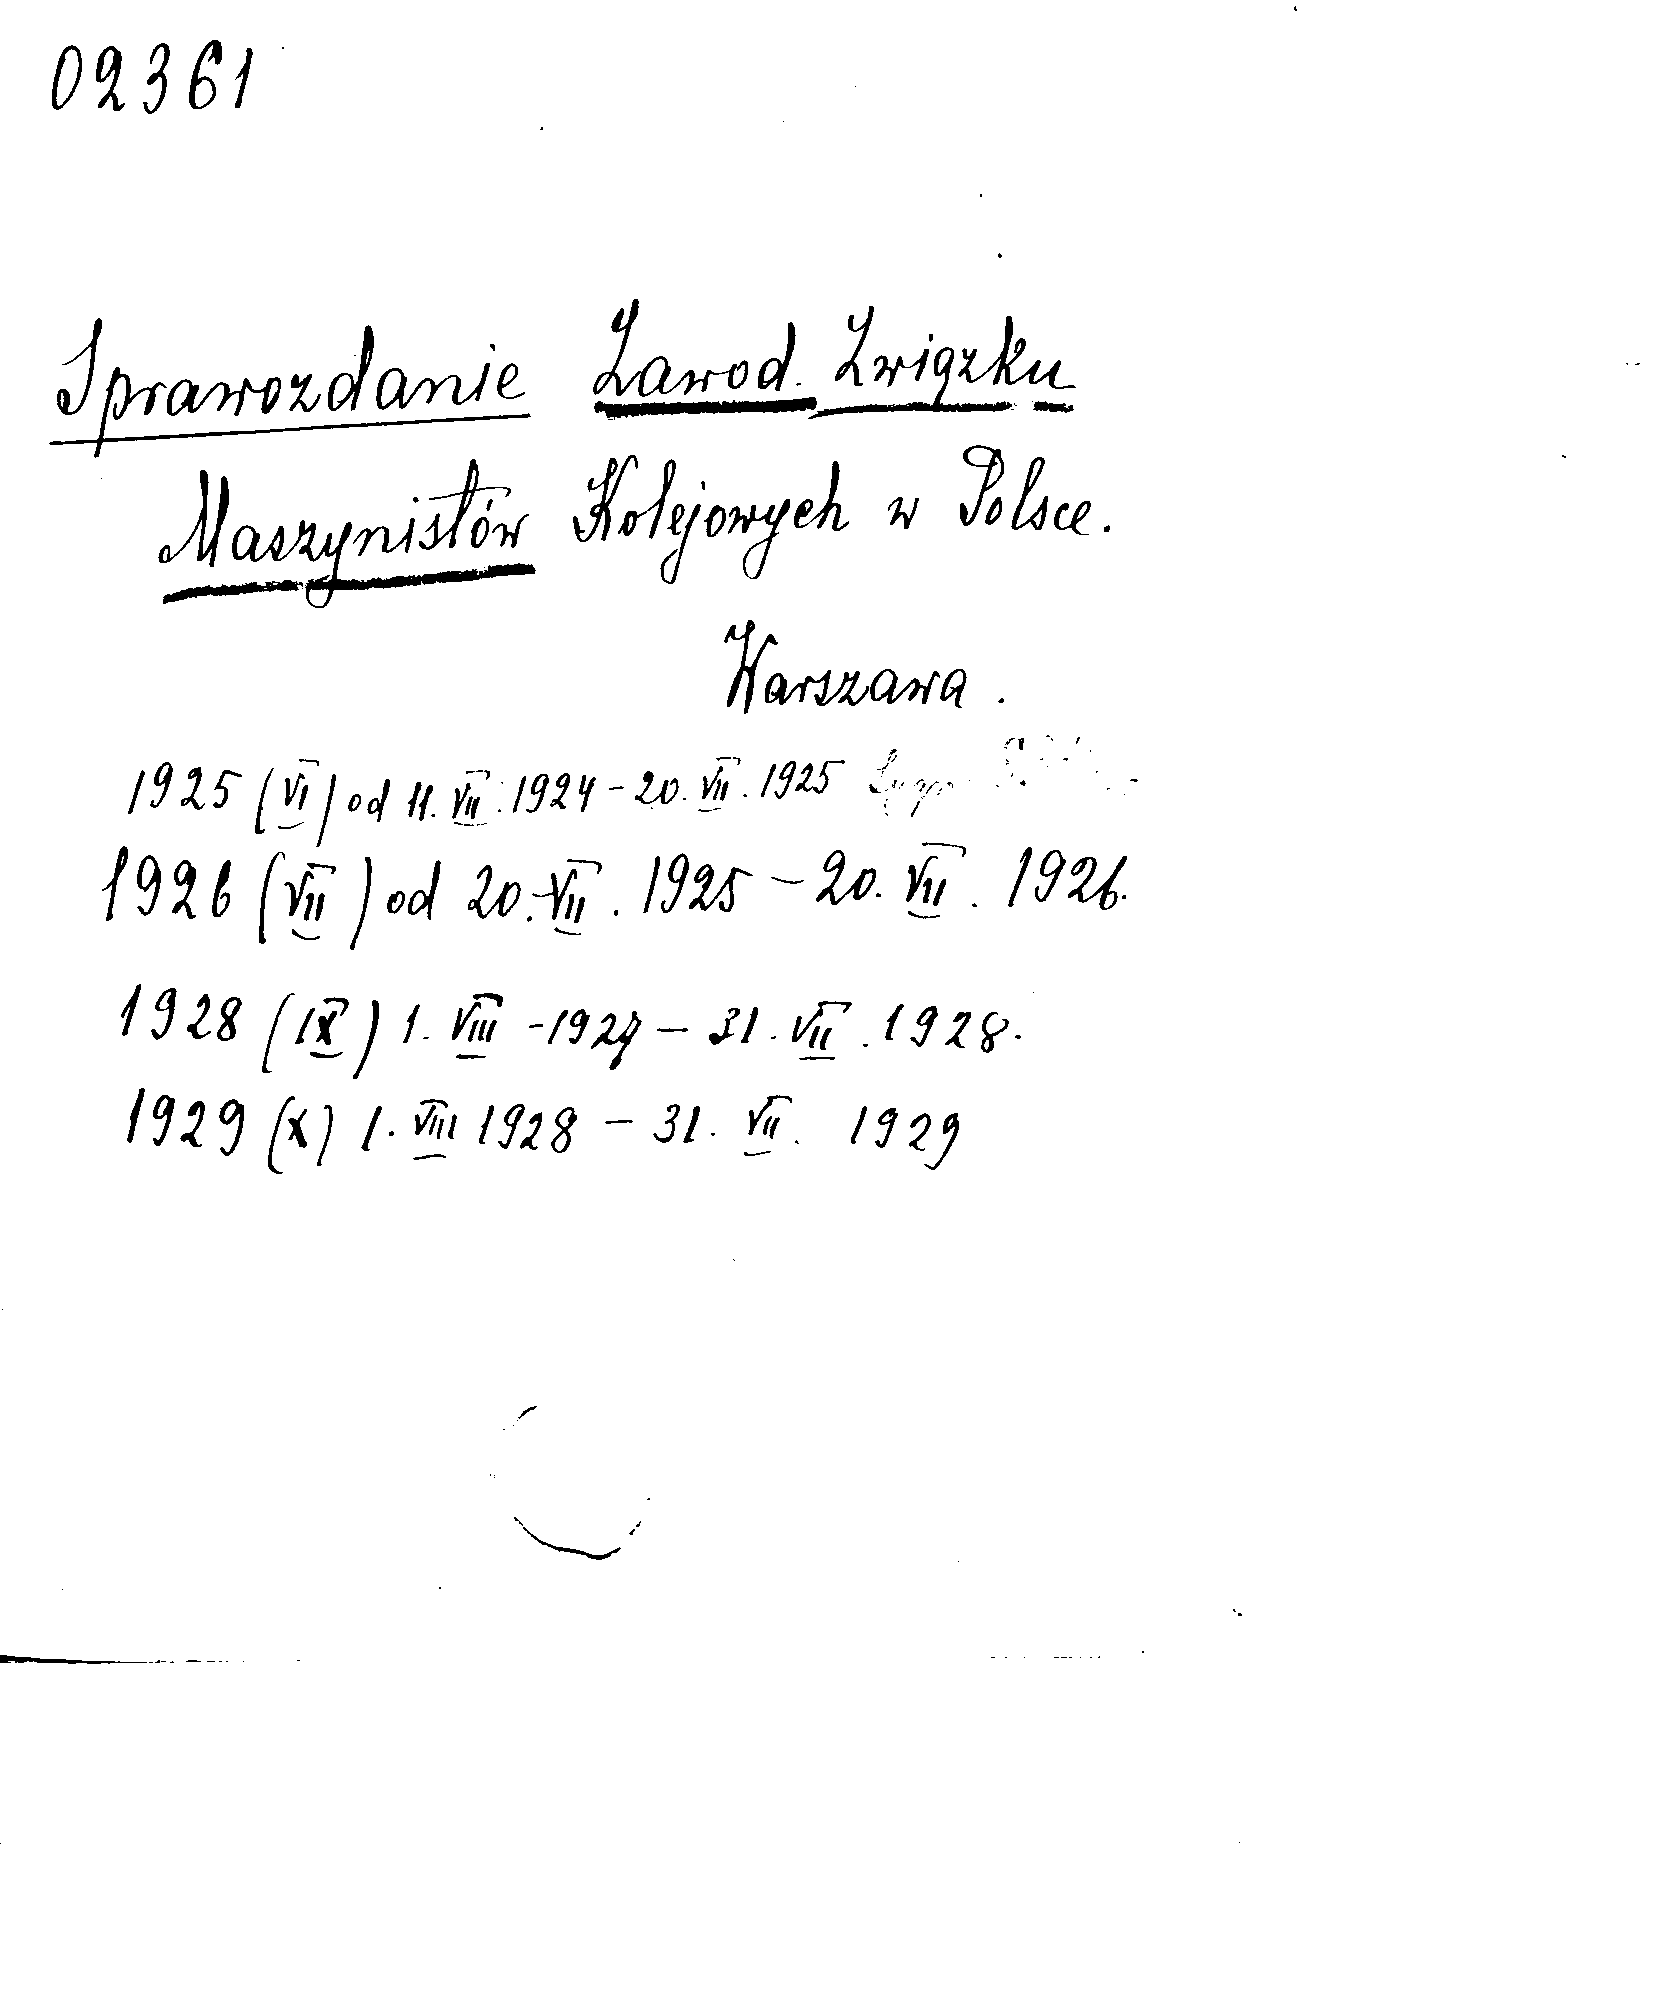 02361
Sprawozdanie Zawod. Związku
Maszynistów Kolejowych w Polsce.
Warszawa.
1925 (VI) od 11. VII. 1924 - 20. VII. 1925
1926 (VII) od 20. VII. 1925 - 20. VII. 1926.
1928 (IX) 1. VIII - 1927 - 31. VII. 1928.
1929 (X) 1. VIII 1928 - 31. VII. 1929